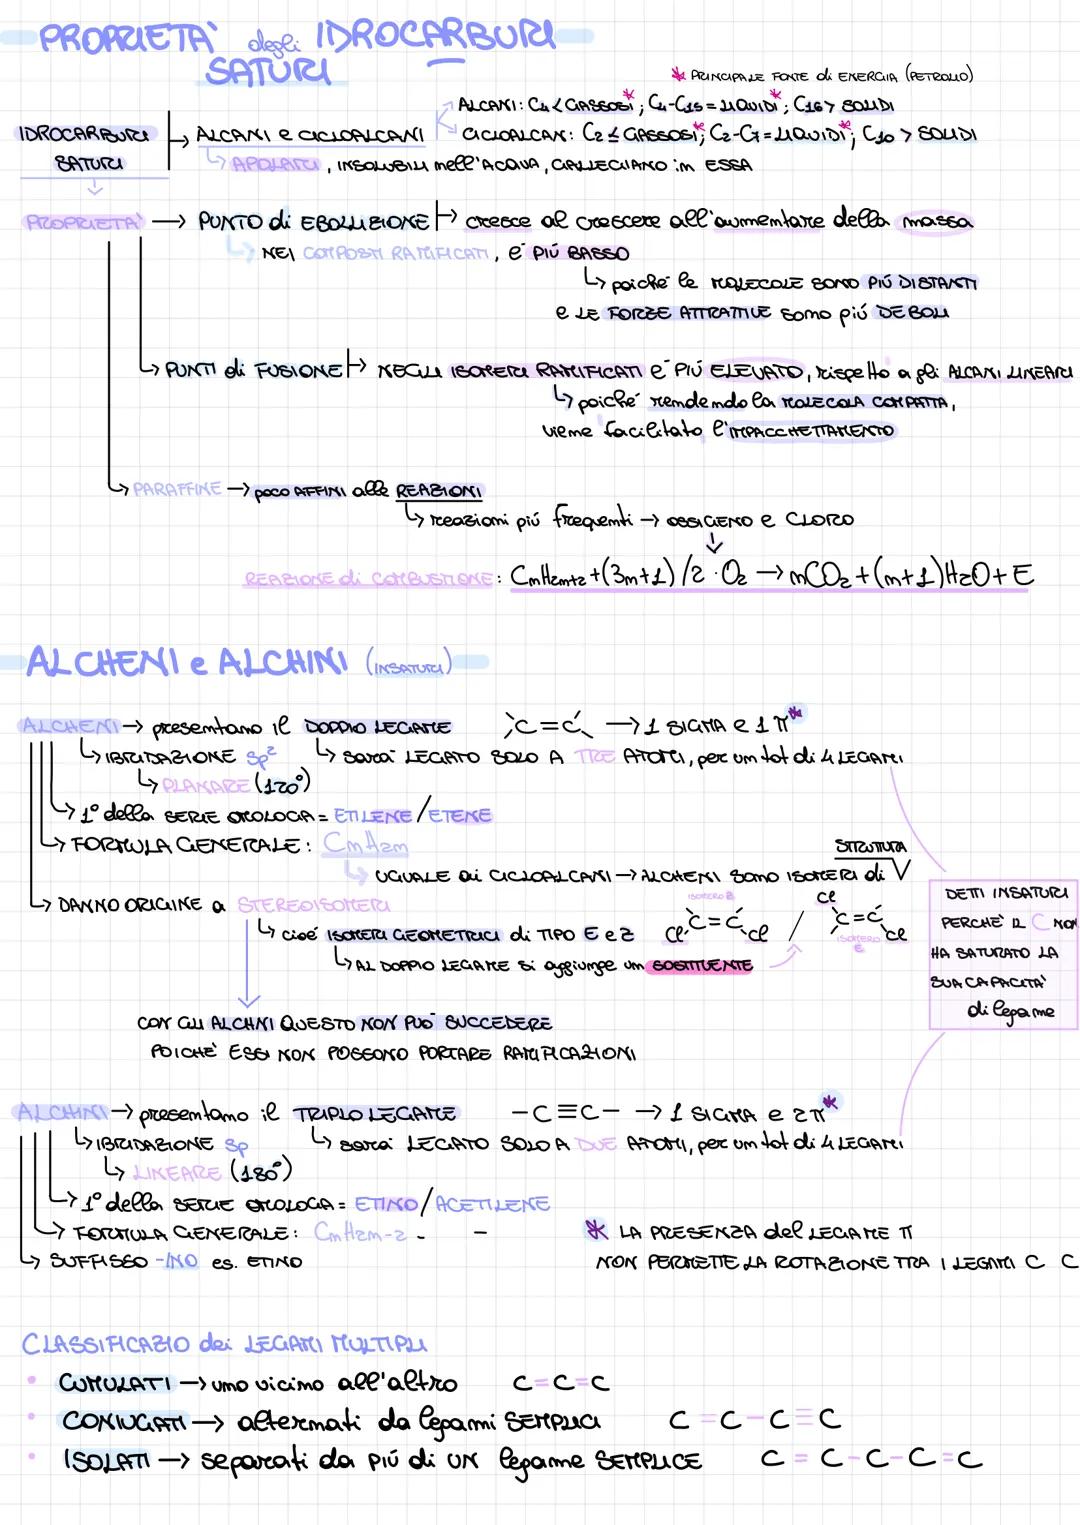 PROPRIETÀ degli IDROCARBURI
SATURI
* PRINCIPALE FONTE di ENERGIA (PETROLIO)
ALCANI: C4 < GASSOSI*; C4-C15 = LIQUIDI*; C16 > SOLIDI
IDROCARBURI SATURI
ALCANI e CICLOALCANI
CICLOALCAN: C2 ≤ GASSOSI*; C2-C7 = LIQUIDI*; C10 > SOLIDI
↳ APOLARI, INSOLUBILI nell'ACQUA, GALLEGGIANO in ESSA
PROPRIETÀ → PUNTO di EBOLLIZIONE ↦ cresce al crescere all'aumentare della massa
↳ NEI COMPOSTI RAMIFICATI, è PIÚ BASSO
↳ poiché le MOLECOLE SONO PIÚ DISTANTI
e LE FORZE ATTRATTIVE sono piú DEBOLI
↳ PUNTI di FUSIONE ↦ NEGLI ISOMERI RAMIFICATI é PIÚ ELEVATO, rispetto agli ALCANI LINEARI
↳ poiché rendendo la MOLECOLA COMPATTA,
viene facilitato l'IMPACCHETTAMENTO
↳ PARAFFINE → poco AFFINI alle REAZIONI
↳ reazioni piú frequenti → OSSIGENO e CLORO
REAZIONE di COMBUSTIONE: CnH2n+2 + (3n+1)/2 · O2 → nCO2 + (n+1)H2O + E
ALCHENI e ALCHINI (INSATURI)
ALCHENI → presentano il DOPPIO LEGAME C=C → 1 SIGMA e 1 π*
↳ IBRIDAZIONE sp² ↳ sarà LEGATO SOLO A TRE ATOMI, per un tot di 4 LEGAMI
↳ PLANARE (120°)
↳ 1° della SERIE OMOLOGA = ETILENE/ETENE
↳ FORMULA GENERALE: CnH2n
↳ UGUALE ai CICLOALCANI → ALCHENI sono ISOMERI di STRUTTURA
↳ DANNO ORIGINE a STEREOISOMERI
↳ cioé ISOMERI GEOMETRICI di TIPO E e Z
ISOMERO Z
Cl C=C Cl / Cl C=C Cl
ISOMERO E
↳ AL DOPPIO LEGAME si aggiunge un SOSTITUENTE
DETTI INSATURI
PERCHÈ IL C NON
HA SATURATO LA
SUA CAPACITA'
di legame
CON GLI ALCHINI QUESTO NON PUÒ SUCCEDERE
POICHÈ ESSI NON POSSONO PORTARE RAMIFICAZIONI
ALCHINI → presentano il TRIPLO LEGAME -C≡C- → 1 SIGMA e 2π*
↳ IBRIDAZIONE sp ↳ sarà LEGATO SOLO A DUE ATOMI, per un tot di 4 LEGAMI
↳ LINEARE (180°)
↳ 1° della SERIE OMOLOGA = ETINO/ACETILENE
↳ FORMULA GENERALE: CnH2n-2 - -
↳ SUFFISSO -INO es. ETINO
* LA PRESENZA del LEGAME π
NON PERMETTE LA ROTAZIONE TRA I LEGAMI C C
CLASSIFICAZIO dei LEGAMI MULTIPLI
• CUMULATI → uno vicino all'altro C=C=C
• CONIUGATI → alternati da legami SEMPLICI C=C-C≡C
• ISOLATI → separati da piú di UN legame SEMPLICE C=C-C-C=C